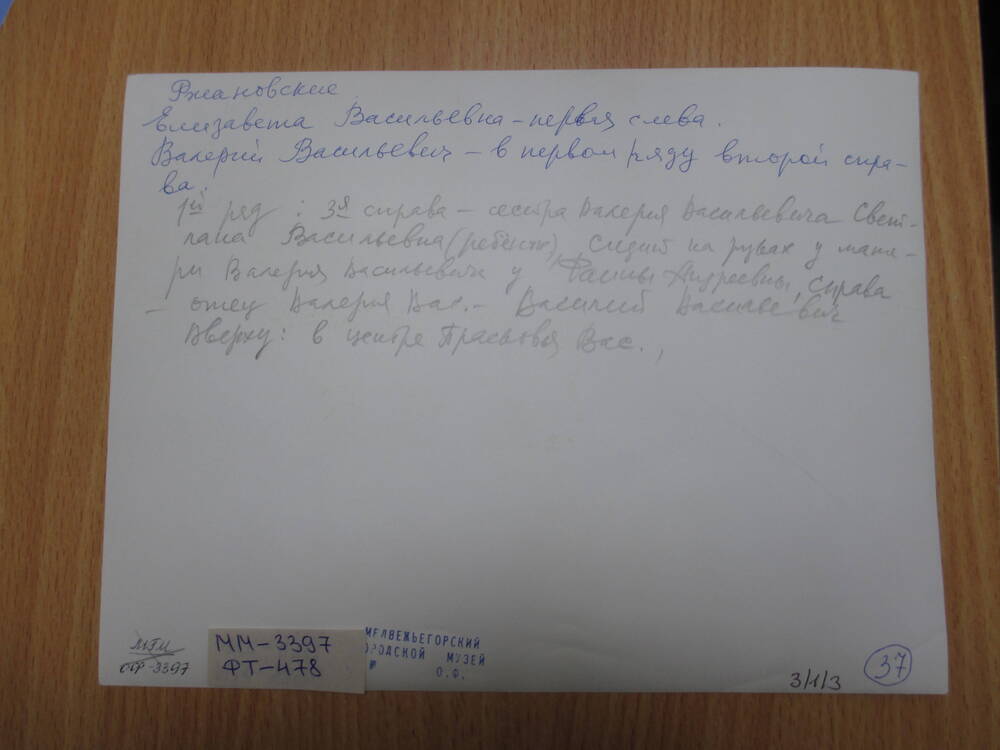 Ржановские
Елизавета Васильевна - первая слева.
Валерий Васильевич - в первом ряду второй спра-
ва
1й ряд: 3я справа - сестра Валерия Васильевича Свет-
лана Васильевна (ребёнок) сидит на руках у мате-
ри Валерия Васильевича у Фаины Андреевны, справа
- отец Валерия Вас. - Василий Васильевич
Вверху: в центре Прасковья Вас.,
МЕДВЕЖЬЕГОРСКИЙ
ГОРОДСКОЙ МУЗЕЙ
О.Ф.
ММ-3397
ФТ-478
3397
3/1/3
37